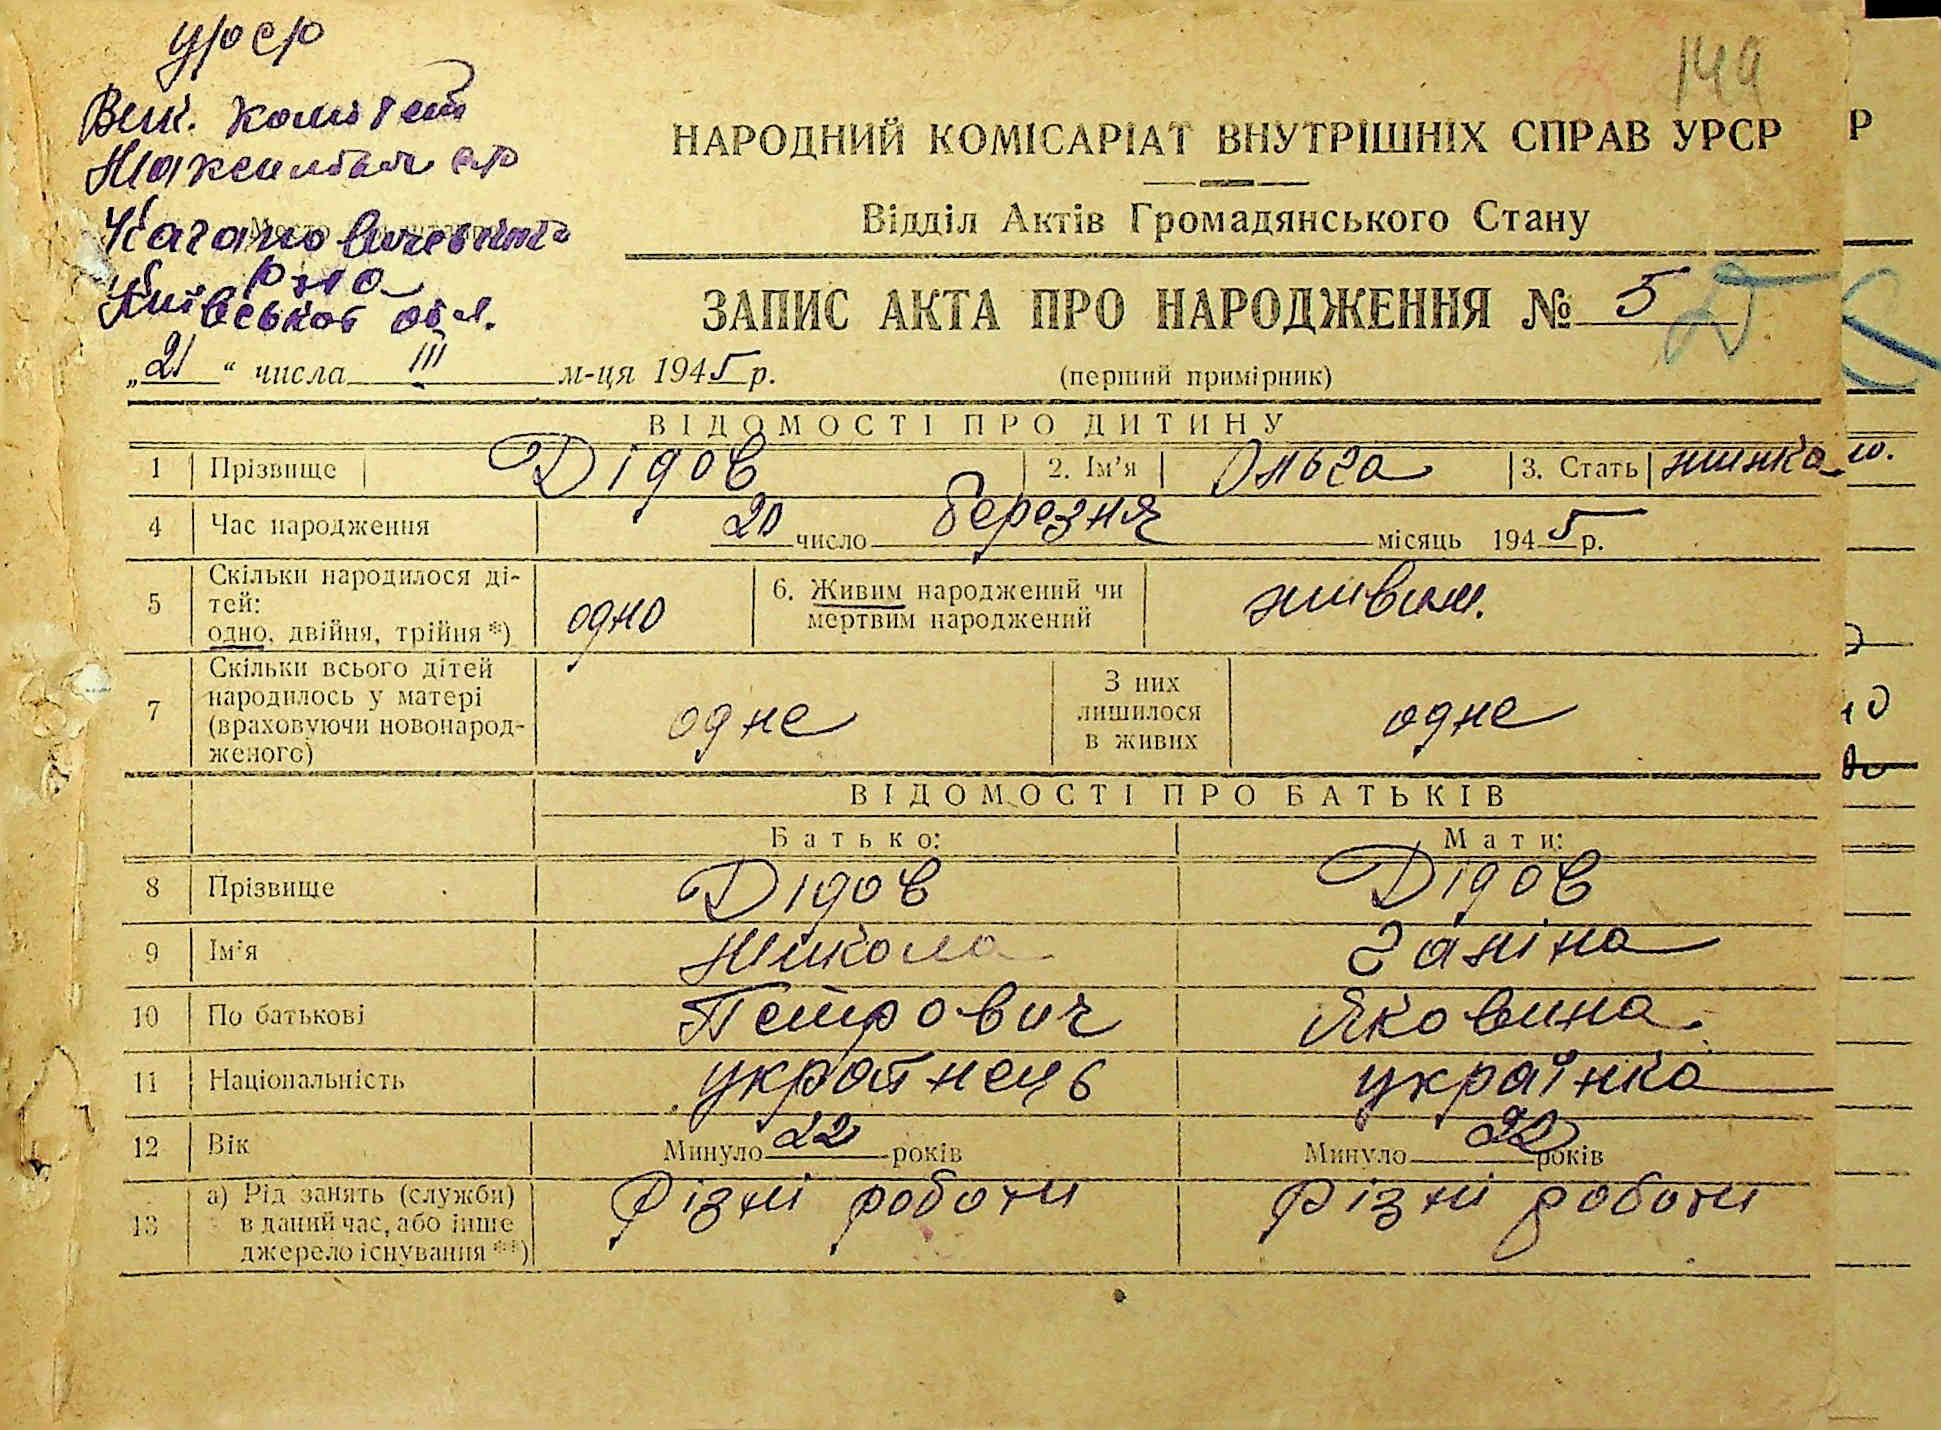 УРСР
149
Вик. комітет
НАРОДНИЙ КОМІСАРІАТ ВНУТРІШНІХ СПРАВ УРСР
Р
с/р
Відділ Актів Громадянського Стану
Кагановичевського
р-на
Київськоъ обл.
ЗАПИС АКТА ПРО НАРОДЖЕННЯ № 5
„21“ числа III м-ця 1945 р.
(перший примірник)
ВІДОМОСТІ ПРО ДИТИНУ
1 Прізвище Дідов 2. Ім’я Ольга 3. Стать жинка
4 Час народження 20 число березня місяць 1945 р.
5 Скільки народилося ді-
тей:
одно, двійня, трійня *) одно
6. Живим народжений чи
мертвим народжений живим.
7 Скільки всього дітей
народилось у матері
(враховуючи новонарод-
женого) одне
З них
лишилося
в живих одне
ВІДОМОСТІ ПРО БАТЬКІВ
Батько: Мати:
8 Прізвище Дідов Дідов
9 Ім’я Микола Ганіна
10 По батькові Петрович Яковина.
11 Національність українець українка
12 Вік Минуло 22 років Минуло 22 років
13 а) Рід занять (служби) Різні роботи Різні роботи
в даний час, або інше
джерело існування **)